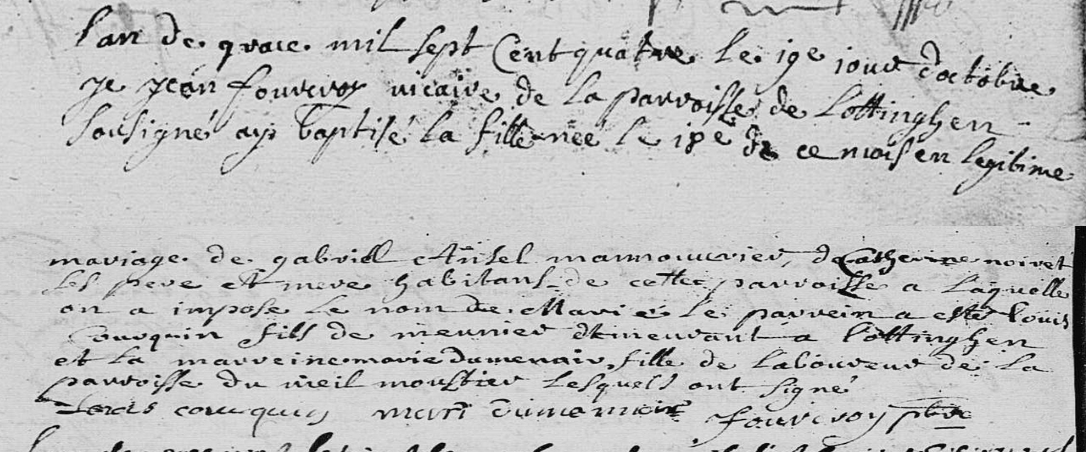 lan de grace mil sept Cent quatre le 19e iour doctobre
Je Jean fourcroy vicaire de la parroisse de Lottinghen
sousigné ay baptisé la fille née le 18e de ce mois en legitime
mariage de gabriel Ansel mannouvrier, de Catherine noiret
les pere et mere habitans de cette parroisse a laquelle
on a imposé le nom de Marie le parrein a esté louis
Courquin fils de meunier demeurant a lottinghen
et la marreine marie dumenair fille de laboureur de la
parroisse du vieil moustier lesquels ont signé
Louis courquin mari fourcroy pbre